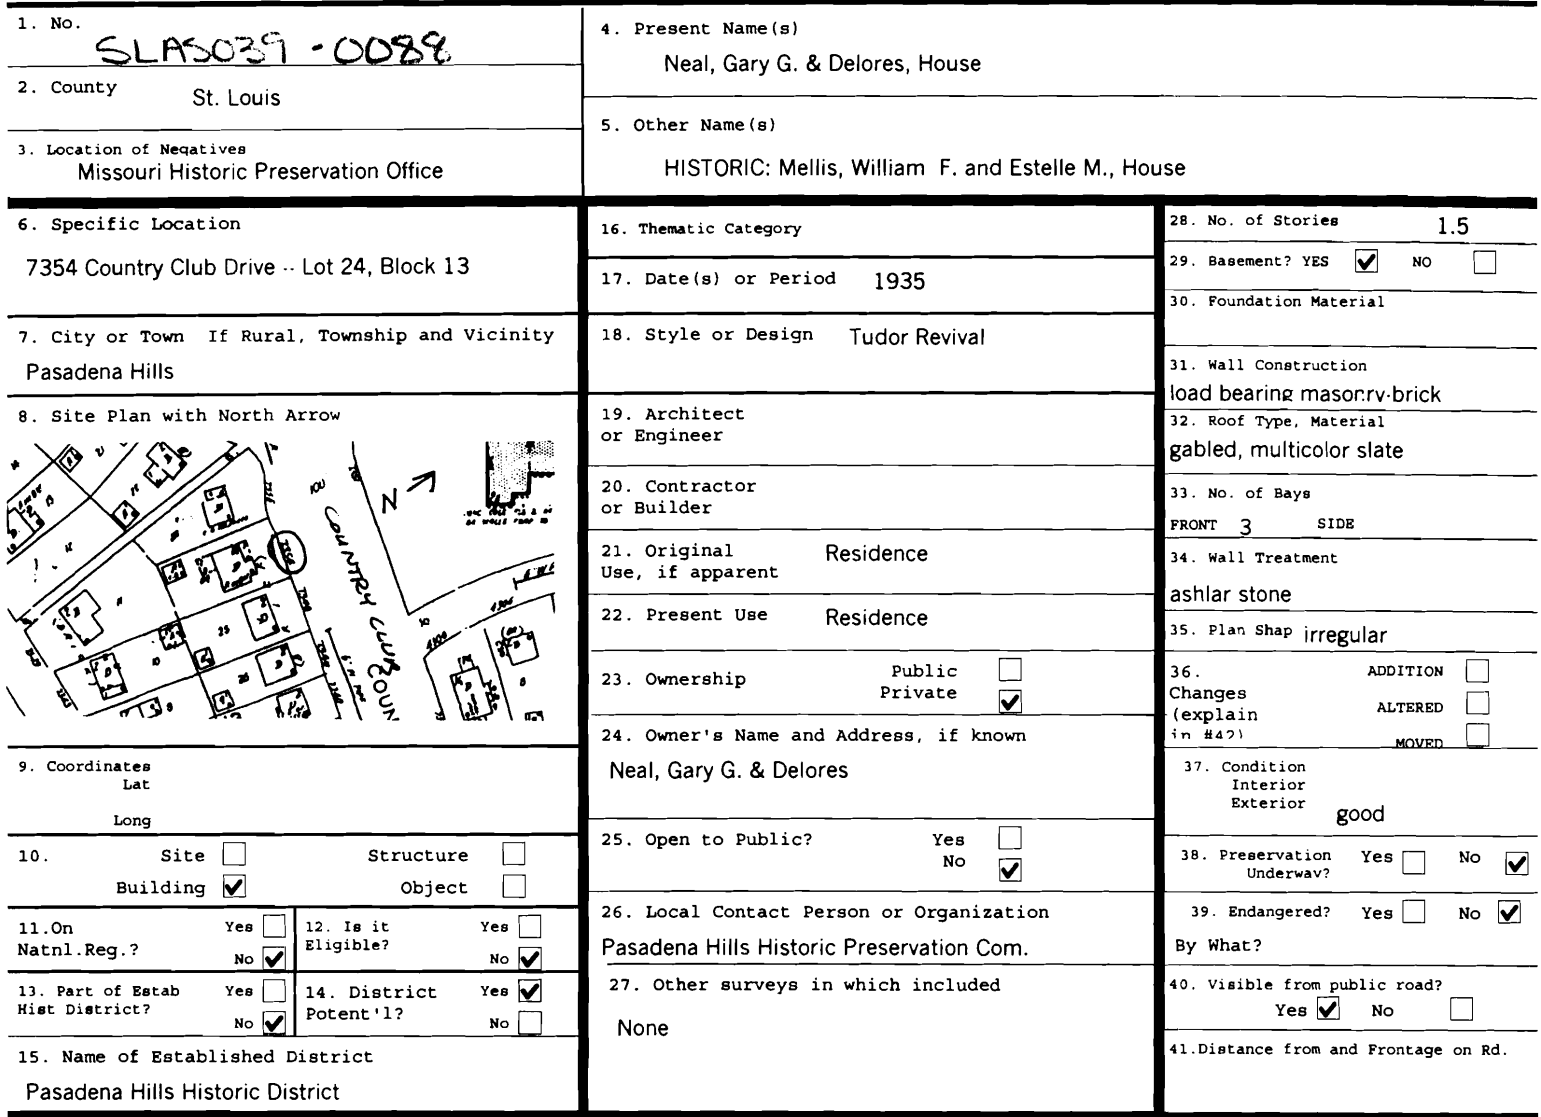 1. No.
SLAS039-0088
2. County
St. Louis
3. Location of Negatives
Missouri Historic Preservation Office
4. Present Name(s)
Neal, Gary G. & Delores, House
5. Other Name(s)
HISTORIC: Mellis, William F. and Estelle M., House
6. Specific Location
7354 Country Club Drive -- Lot 24, Block 13
7. City or Town If Rural, Township and Vicinity
Pasadena Hills
8. Site Plan with North Arrow
N
COUNTRY CLUB
COUN
9. Coordinates
Lat
Long
10. Site Structure
Building ✔ Object
11.On Yes
Natnl.Reg.? No ✔
12. Is it Yes
Eligible? No ✔
13. Part of Estab Yes
Hist District? No ✔
14. District Yes ✔
Potent'l? No
15. Name of Established District
Pasadena Hills Historic District
16. Thematic Category
17. Date(s) or Period 1935
18. Style or Design Tudor Revival
19. Architect
or Engineer
20. Contractor
or Builder
21. Original Residence
Use, if apparent
22. Present Use Residence
23. Ownership Public
Private ✔
24. Owner's Name and Address, if known
Neal, Gary G. & Delores
25. Open to Public? Yes
No ✔
26. Local Contact Person or Organization
Pasadena Hills Historic Preservation Com.
27. Other surveys in which included
None
28. No. of Stories 1.5
29. Basement? YES ✔ NO
30. Foundation Material
31. Wall Construction
load bearing masonry-brick
32. Roof Type, Material
gabled, multicolor slate
33. No. of Bays
FRONT 3 SIDE
34. Wall Treatment
ashlar stone
35. Plan Shap irregular
36. ADDITION
Changes
(explain ALTERED
in #42) MOVED
37. Condition
Interior
Exterior good
38. Preservation Yes No ✔
Underway?
39. Endangered? Yes No ✔
By What?
40. Visible from public road?
Yes ✔ No
41.Distance from and Frontage on Rd.